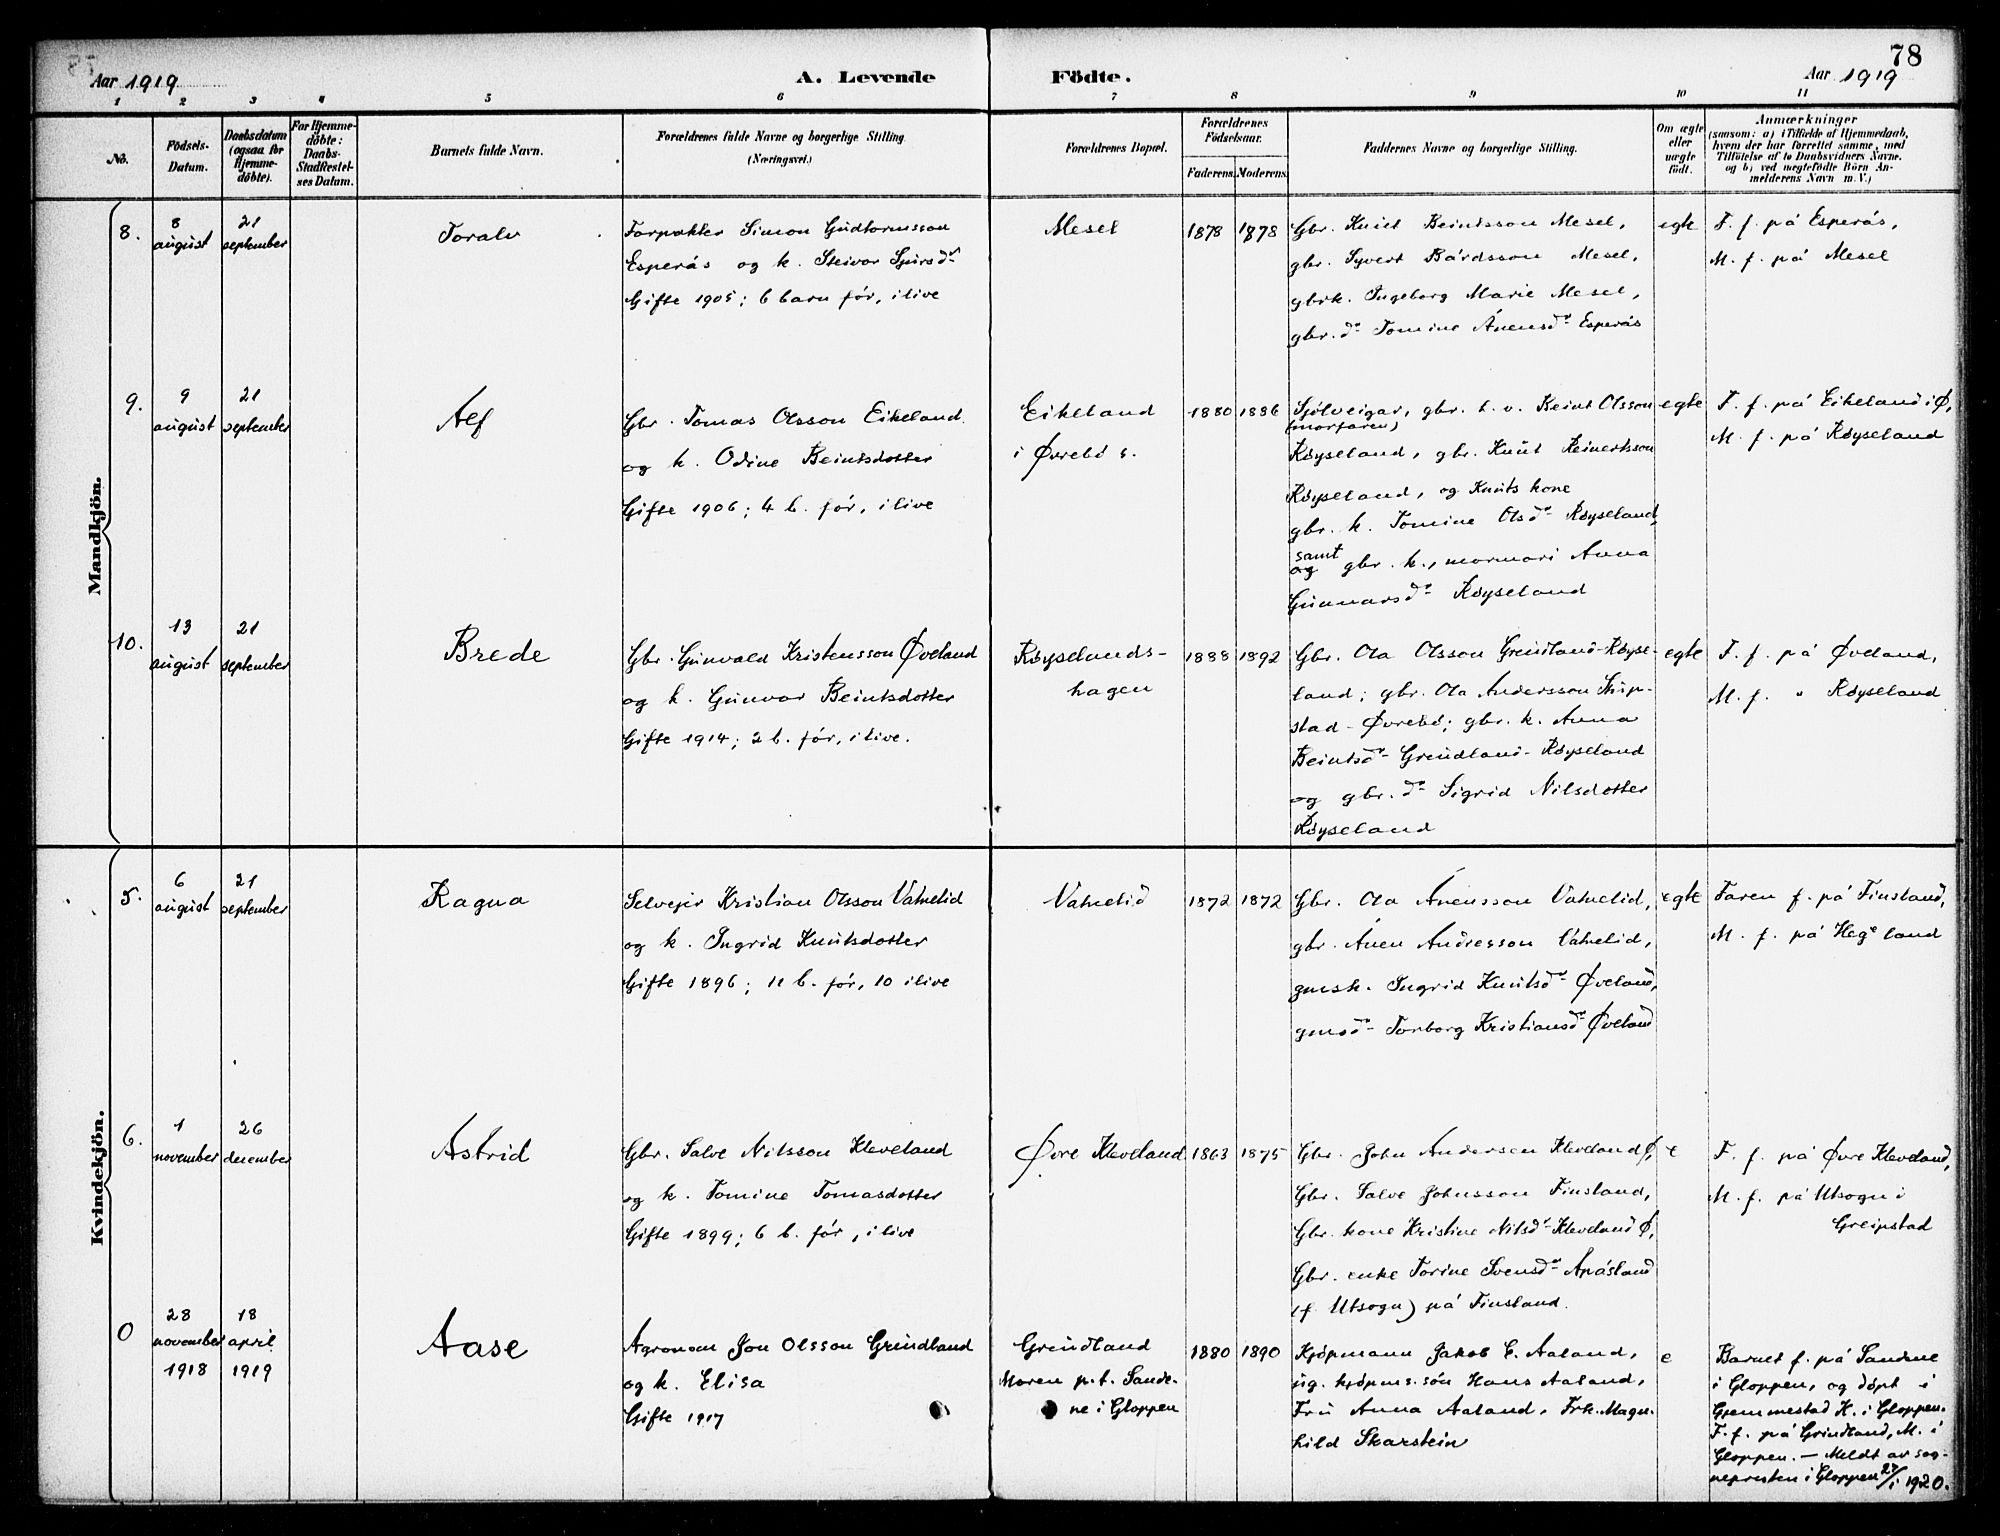 78
Aar 1919
A. Levende
Födte.
Aar 1919
1 2 3 4 5 6 7 8 9 10 11
No.
Födsels-
Datum.
Daabsdatum
(ogsaa for
Hjemme-
döbte).
For Hjemme-
döbte:
Daabs-
Stadfæstel-
ses Datum.
Barnets fulde Navn.
Forældrenes fulde Navne og borgerlige Stilling
(Næringsvei.)
Forældrenes Bopæl.
Forældrenes
Födselsaar.
Faderens. Moderens.
Faddernes Navne og borgerlige Stilling.
Om ægte
eller
uægte
født.
Anmærkninger
(saasom: a) i Tilfælde af Hjemmedaab,
hvem der har forrettet samme, med
Tilföielse af to Daabsvidners Navne.
og b) ved uægtefödte Börn An-
melderens Navn m. V.)
Mandkjön.
8.
8
august
21
september
Toralv
Forpakter Simon Gudtormsson
Esperås og k. Steivor Sjursdr
Gifte 1905; 6 barn før, i live
Mesel
1878
1878
Gbr. Knut Beintsson Mesel,
gbr. Syvert Bårdsson Mesel,
gbrk. Ingeborg Marie Mesel,
gbr. dr Tomine Ånensdr Esperås
egte
F. f. på Esperås,
M. f. på Mesel
9.
9
august
21
september
Alf
Gbr. Tomas Olsson Eikeland
og k. Odine Beintsdotter
Gifte 1906; 4 b. før, i live
Eikeland
i Øvrebø s.
1880
1886
Sjølveigar, gbr. t. v. Beint Olsson
(morfaren)
Røyseland, gbr. Knut Reinertsson
Røyseland, og Knuts kone
gbr. k. Tomine Olsdr Røyseland,
samt
og gbr. k., mormori Anna
Gunnarsdr Røyseland
egte
F. f. på Eikeland i Ø,
M. f. på Røyseland
10.
13
august
21
september
Brede
Gbr. Gunvald Kristensson Øveland
og k. Gunvor Beintsdotter
Gifte 1914; 2 b. før, i live.
Røyselands-
hagen
1888
1892
Gbr. Ola Olsson Grendland-Røyse-
land; gbr. Ola Andersson Skip-
stad-Øvrebø; gbr. k. Anna
Beintsdr Grundland-Røyseland
og gbr. dr Sigrid Nilsdotter
Røyseland
egte
F. f. på Øveland,
M. f. " Røyseland
Kvindekjön.
5.
6
august
21
september
Ragna
Selvejer Kristian Olsson Vatnelid
og k. Ingrid Knutsdotter
Gifte 1896; 11 b. før, 10 i live
Vatnelid
1872
1872
Gbr. Ola Ånensson Vatnelid,
gbr. Ånen Andresson Vatnelid,
gmsk. Ingrid Knutsdr Øveland,
gmsdr Torborg Kristiansdr Øveland
egte
Faren f. på Finsland,
M. f. på Hegeland
6.
1
november
26
december
Astrid
Gbr. Salve Nilsson Kleveland
og k. Tomine Tomasdotter
Gifte 1899; 6 b. før, i live
Øvre Kleveland
1863
1875
Gbr. John Andersen Kleveland Ø,
Gbr. Salve Johnsson Finsland,
Gbr. kone Kristine Nilsdr Kleveland Ø,
Gbr. enke Torine Svensdr Apåsland
(f. Utsogn) på Finsland.
e
F. f. på Øvre Kleveland,
M. f. på Utsogn i
Greipstad
0
28
november
1918
18
april
1919
Aase
Agronom Jon Olsson Grundland
og k. Elisa
Gifte 1917
Grundland
Moren p.t. Sande-
ne i Gloppen
1880
1890
Kjøpmann Jakob E. Aaland,
ug. kjøpms. søn Hans Aaland,
Fru Anna Aaland, Frk. Magn-
hild Skarstein
e
Barnet f. på Sandene
i Gloppen, og døpt i
Gjemmestad K. i Gloppen.
F. f. på Grindland, M. i
Gloppen. — Meldt av sog-
nepresten i Gloppen 27/1 1920.